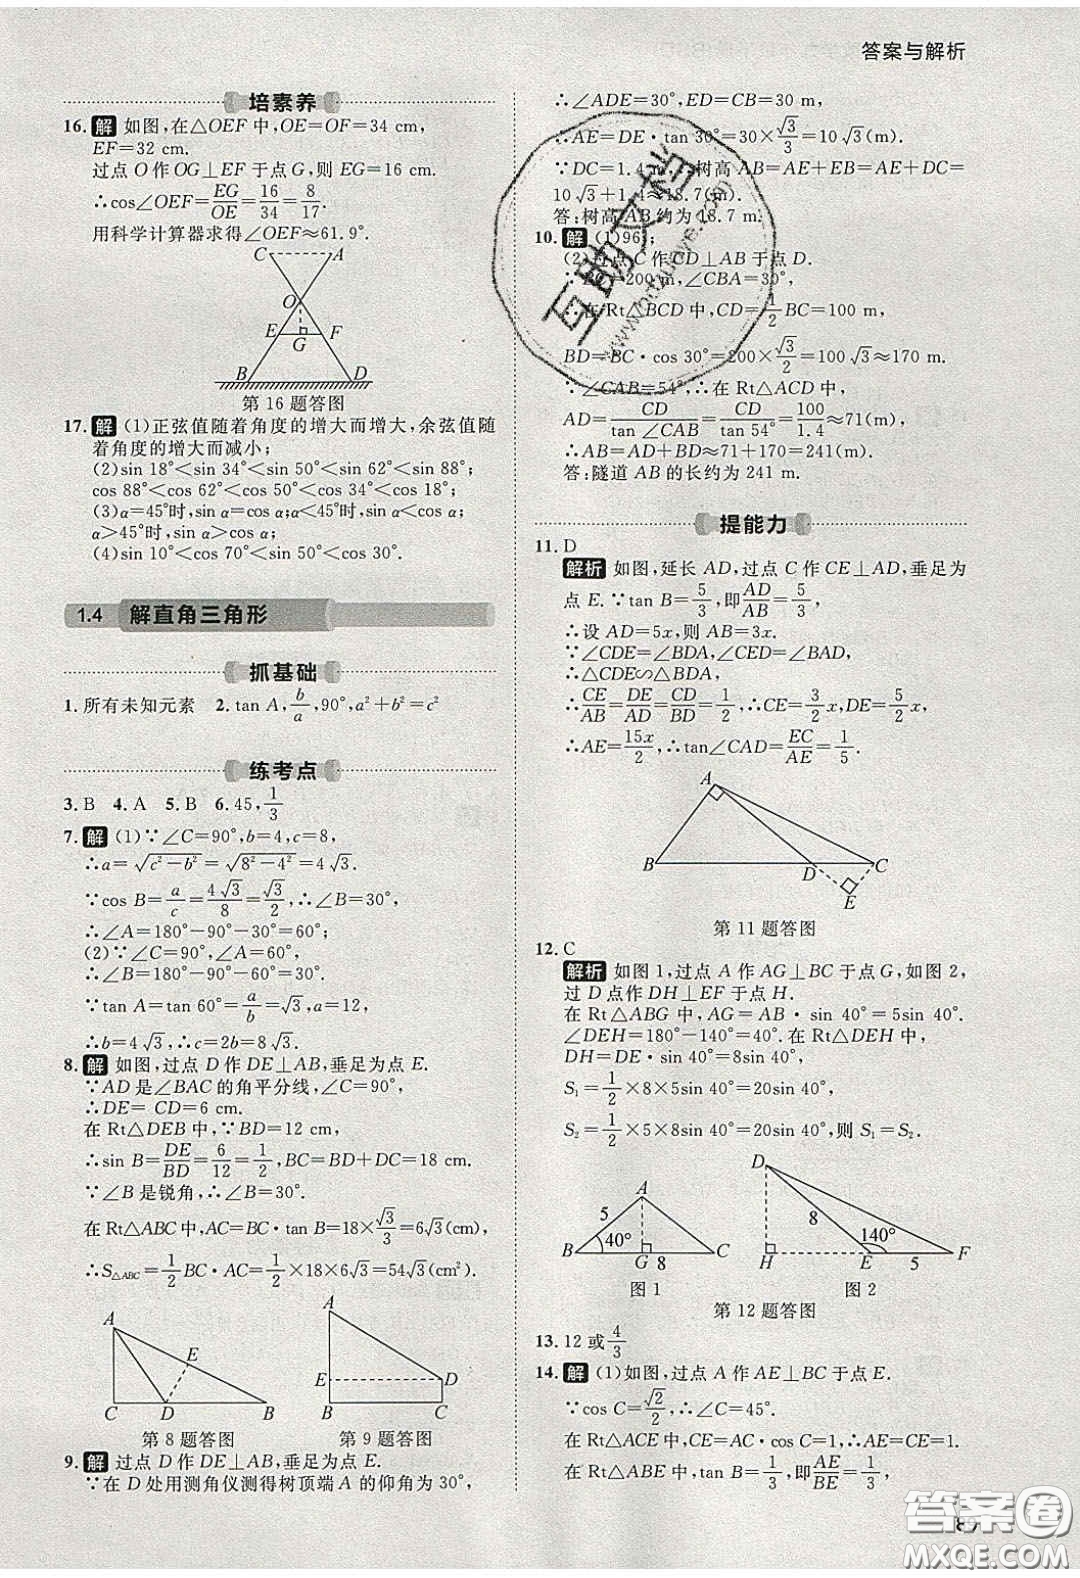 答案与解析
培素养
16. 解 如图,在△OEF中,OE=OF=34 cm,
EF=32 cm.
过点O作OG⊥EF于点G,则EG=16 cm.
∴cos∠OEF=EG/OE=16/34=8/17.
用科学计算器求得∠OEF≈61.9°.
C A
O
E G F
B D
第16题答图
17. 解 (1)正弦值随着角度的增大而增大,余弦值随
着角度的增大而减小;
(2)sin 18°<sin 34°<sin 50°<sin 62°<sin 88°;
cos 88°<cos 62°<cos 50°<cos 34°<cos 18°.
(3)α=45°时,sin α=cos α;α<45°时,sin α<cos α;
α>45°时,sin α>cos α;
(4)sin 10°<cos 70°<sin 50°<cos 30°.
1.4 解直角三角形
抓基础
1. 所有未知元素 2. tan A,b/a,90°,a²+b²=c²
练考点
3. B 4. A 5. B 6. 45,1/3
7. 解 (1)∵∠C=90°,b=4,c=8,
∴a=√(c²-b²)=√(8²-4²)=4√3.
∵cos B=a/c=4√3/8=√3/2,∴∠B=30°,
∴∠A=180°-90°-30°=60°;
(2)∵∠C=90°,∠A=60°,
∴∠B=180°-90°-60°=30°.
∵tan A=tan 60°=a/b=√3,a=12,
∴b=4√3,∴c=2b=8√3.
8. 解 如图,过点D作DE⊥AB,垂足为点E.
∵AD是∠BAC的角平分线,∠C=90°,
∴DE=CD=6 cm.
在Rt△DEB中,∵BD=12 cm,
∴sin B=DE/BD=6/12=1/2,BC=BD+DC=18 cm.
∵∠B是锐角,∴∠B=30°.
在Rt△ABC中,AC=BC·tan B=18×√3/3=6√3(cm),
∴S△ABC=1/2BC·AC=1/2×18×6√3=54√3(cm²).
A
E
C D B
第8题答图
A
E D
B C
第9题答图
9. 解 过点D作DE⊥AB,垂足为点E.
∵在D处用测角仪测得树顶端A的仰角为30°,
∴∠ADE=30°,ED=CB=30 m,
∴AE=DE·tan 30°=30×√3/3=10√3(m).
∵DC=1.4 m,∴树高AB=AE+EB=AE+DC=
10√3+1.4≈18.7(m).
答:树高AB约为18.7 m.
10. 解 (1)96;
(2)过点C作CD⊥AB于点D.
∵BC=200 m,∠CBA=30°,
∴在Rt△BCD中,CD=1/2BC=100 m,
BD=BC·cos 30°=200×√3/2=100√3≈170 m.
∵∠CAB=54°,∴在Rt△ACD中,
AD=CD/tan∠CAB=CD/tan 54°=100/1.4≈71(m),
∴AB=AD+BD≈71+170=241(m).
答:隧道AB的长约为241 m.
提能力
11. D
解析 如图,延长AD,过点C作CE⊥AD,垂足为
点E.∵tan B=5/3,即AD/AB=5/3,
∴设AD=5x,则AB=3x.
∵∠CDE=∠BDA,∠CED=∠BAD,
∴△CDE∽△BDA,
∴CE/AB=DE/AD=CD/BD=1/2,∴CE=3/2x,DE=5/2x,
∴AE=15x/2,∴tan∠CAD=EC/AE=1/5.
A
B D C
E
第11题答图
12. C
解析 如图1,过点A作AG⊥BC于点G,如图2,
过D点作DH⊥EF于点H.
在Rt△ABG中,AG=AB·sin 40°=5sin 40°.
∠DEH=180°-140°=40°.在Rt△DEH中,
DH=DE·sin 40°=8sin 40°,
S₁=1/2×8×5sin 40°=20sin 40°,
S₂=1/2×5×8sin 40°=20sin 40°,则S₁=S₂.
A
5
40°
B G 8 C
图1
D
8
140°
H E 5 F
图2
第12题答图
13. 12或4/3
14. 解 (1)如图,过点A作AE⊥BC于点E.
∵cos C=√2/2,∴∠C=45°.
在Rt△ACE中,CE=AC·cos C=1,∴AE=CE=1.
在Rt△ABE中,tan B=1/3,即AE/BE=1/3,
89
互助文档
答案圈
MXQE.COM